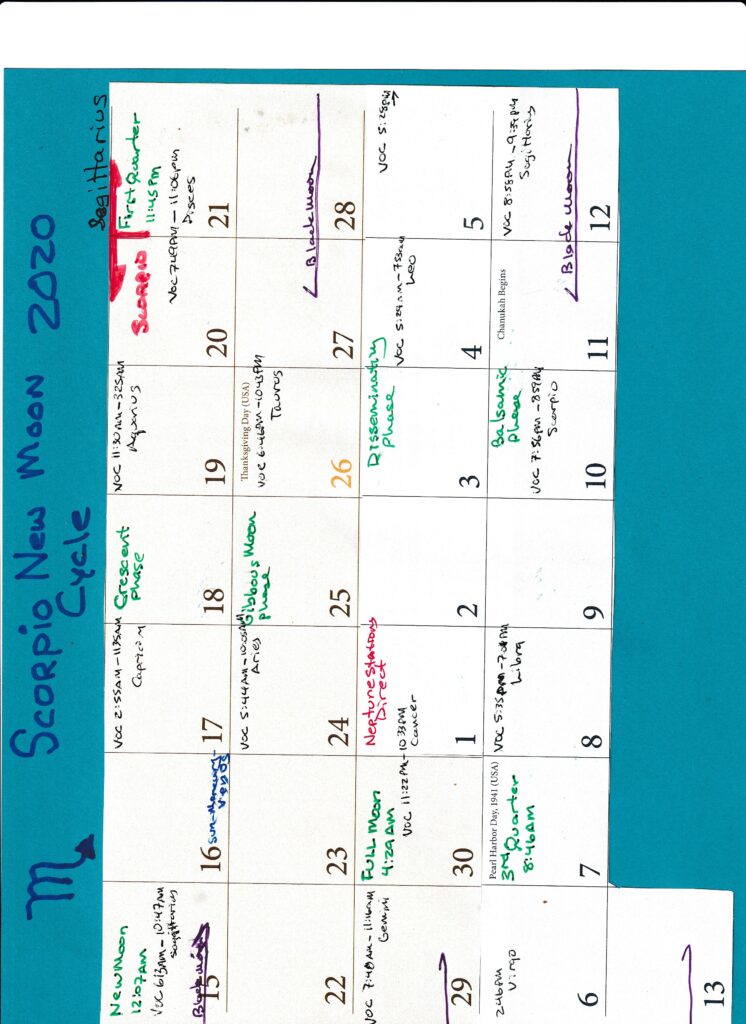 Scorpio New Moon 2020
Cycle
New Moon
12:07AM
Sagittarius
15
16
Sun-Mercury-
VOC 2:55AM-11:35AM
Capricorn
17
Crescent
Phase
18
VOC 11:30AM-3:25AM
Aquarius
19
SCORPIO
20
Sagittarius
First Quarter
11:45 PM
VOC 7:49AM-11:06PM
Pisces
21
22
23
VOC 5:44AM-10:05AM
Aries
24
Gibbous Moon
Phase
25
Thanksgiving Day (USA)
VOC 6:46AM-10:43PM
Taurus
26
27
Black Moon
28
VOC 7:48AM-11:16AM
Gemini
29
FULL MOON
4:29AM
VOC 11:22PM-10:33PM
30
Neptune Stations
Direct
Cancer
1
2
Disseminating
Phase
3
VOC 5:29AM-7:53AM
Leo
4
VOC 5:28PM
5
2:46PM
Virgo
6
Pearl Harbor Day, 1941 (USA)
3rd Quarter
8:46AM
7
VOC 5:35PM-7:01PM
Libra
8
9
Balsamic
Phase
VOC 7:56PM-8:59PM
Scorpio
10
Chanukah Begins
11
VOC 8:58AM-9:39PM
Sagittarius
Black Moon
12
13